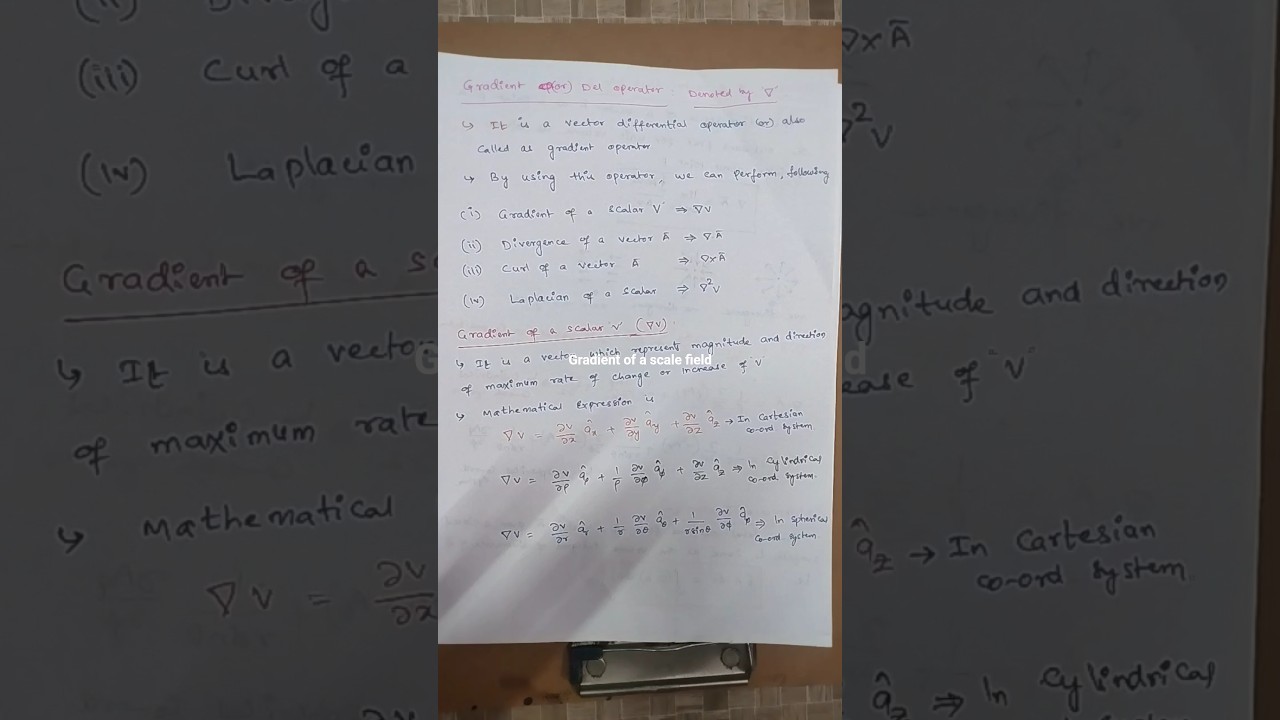 Gradient (or) Del operator : Denoted by ∇
↳ It is a vector differential operator (or) also
called as gradient operator
↳ By using this operator, we can perform, following
(i) Gradient of a scalar "V" ⇒ ∇V
(ii) Divergence of a vector Ā ⇒ ∇.Ā
(iii) Curl of a vector Ā ⇒ ∇xĀ
(iv) Laplacian of a scalar ⇒ ∇²V
Gradient of a scalar V (∇V) :
↳ It is a vector which represents magnitude and direction
Gradient of a scale field
of maximum rate of change or increase of "V"
↳ Mathematical Expression is
∇V = ∂V/∂x âx + ∂V/∂y ây + ∂V/∂z âz → In Cartesian
co-ord system
∇V = ∂V/∂ρ âρ + 1/ρ ∂V/∂φ âφ + ∂V/∂z âz ⇒ In Cylindrical
co-ord system.
∇V = ∂V/∂r âr + 1/r ∂V/∂θ âθ + 1/r sinθ ∂V/∂φ âφ ⇒ In spherical
co-ord system.